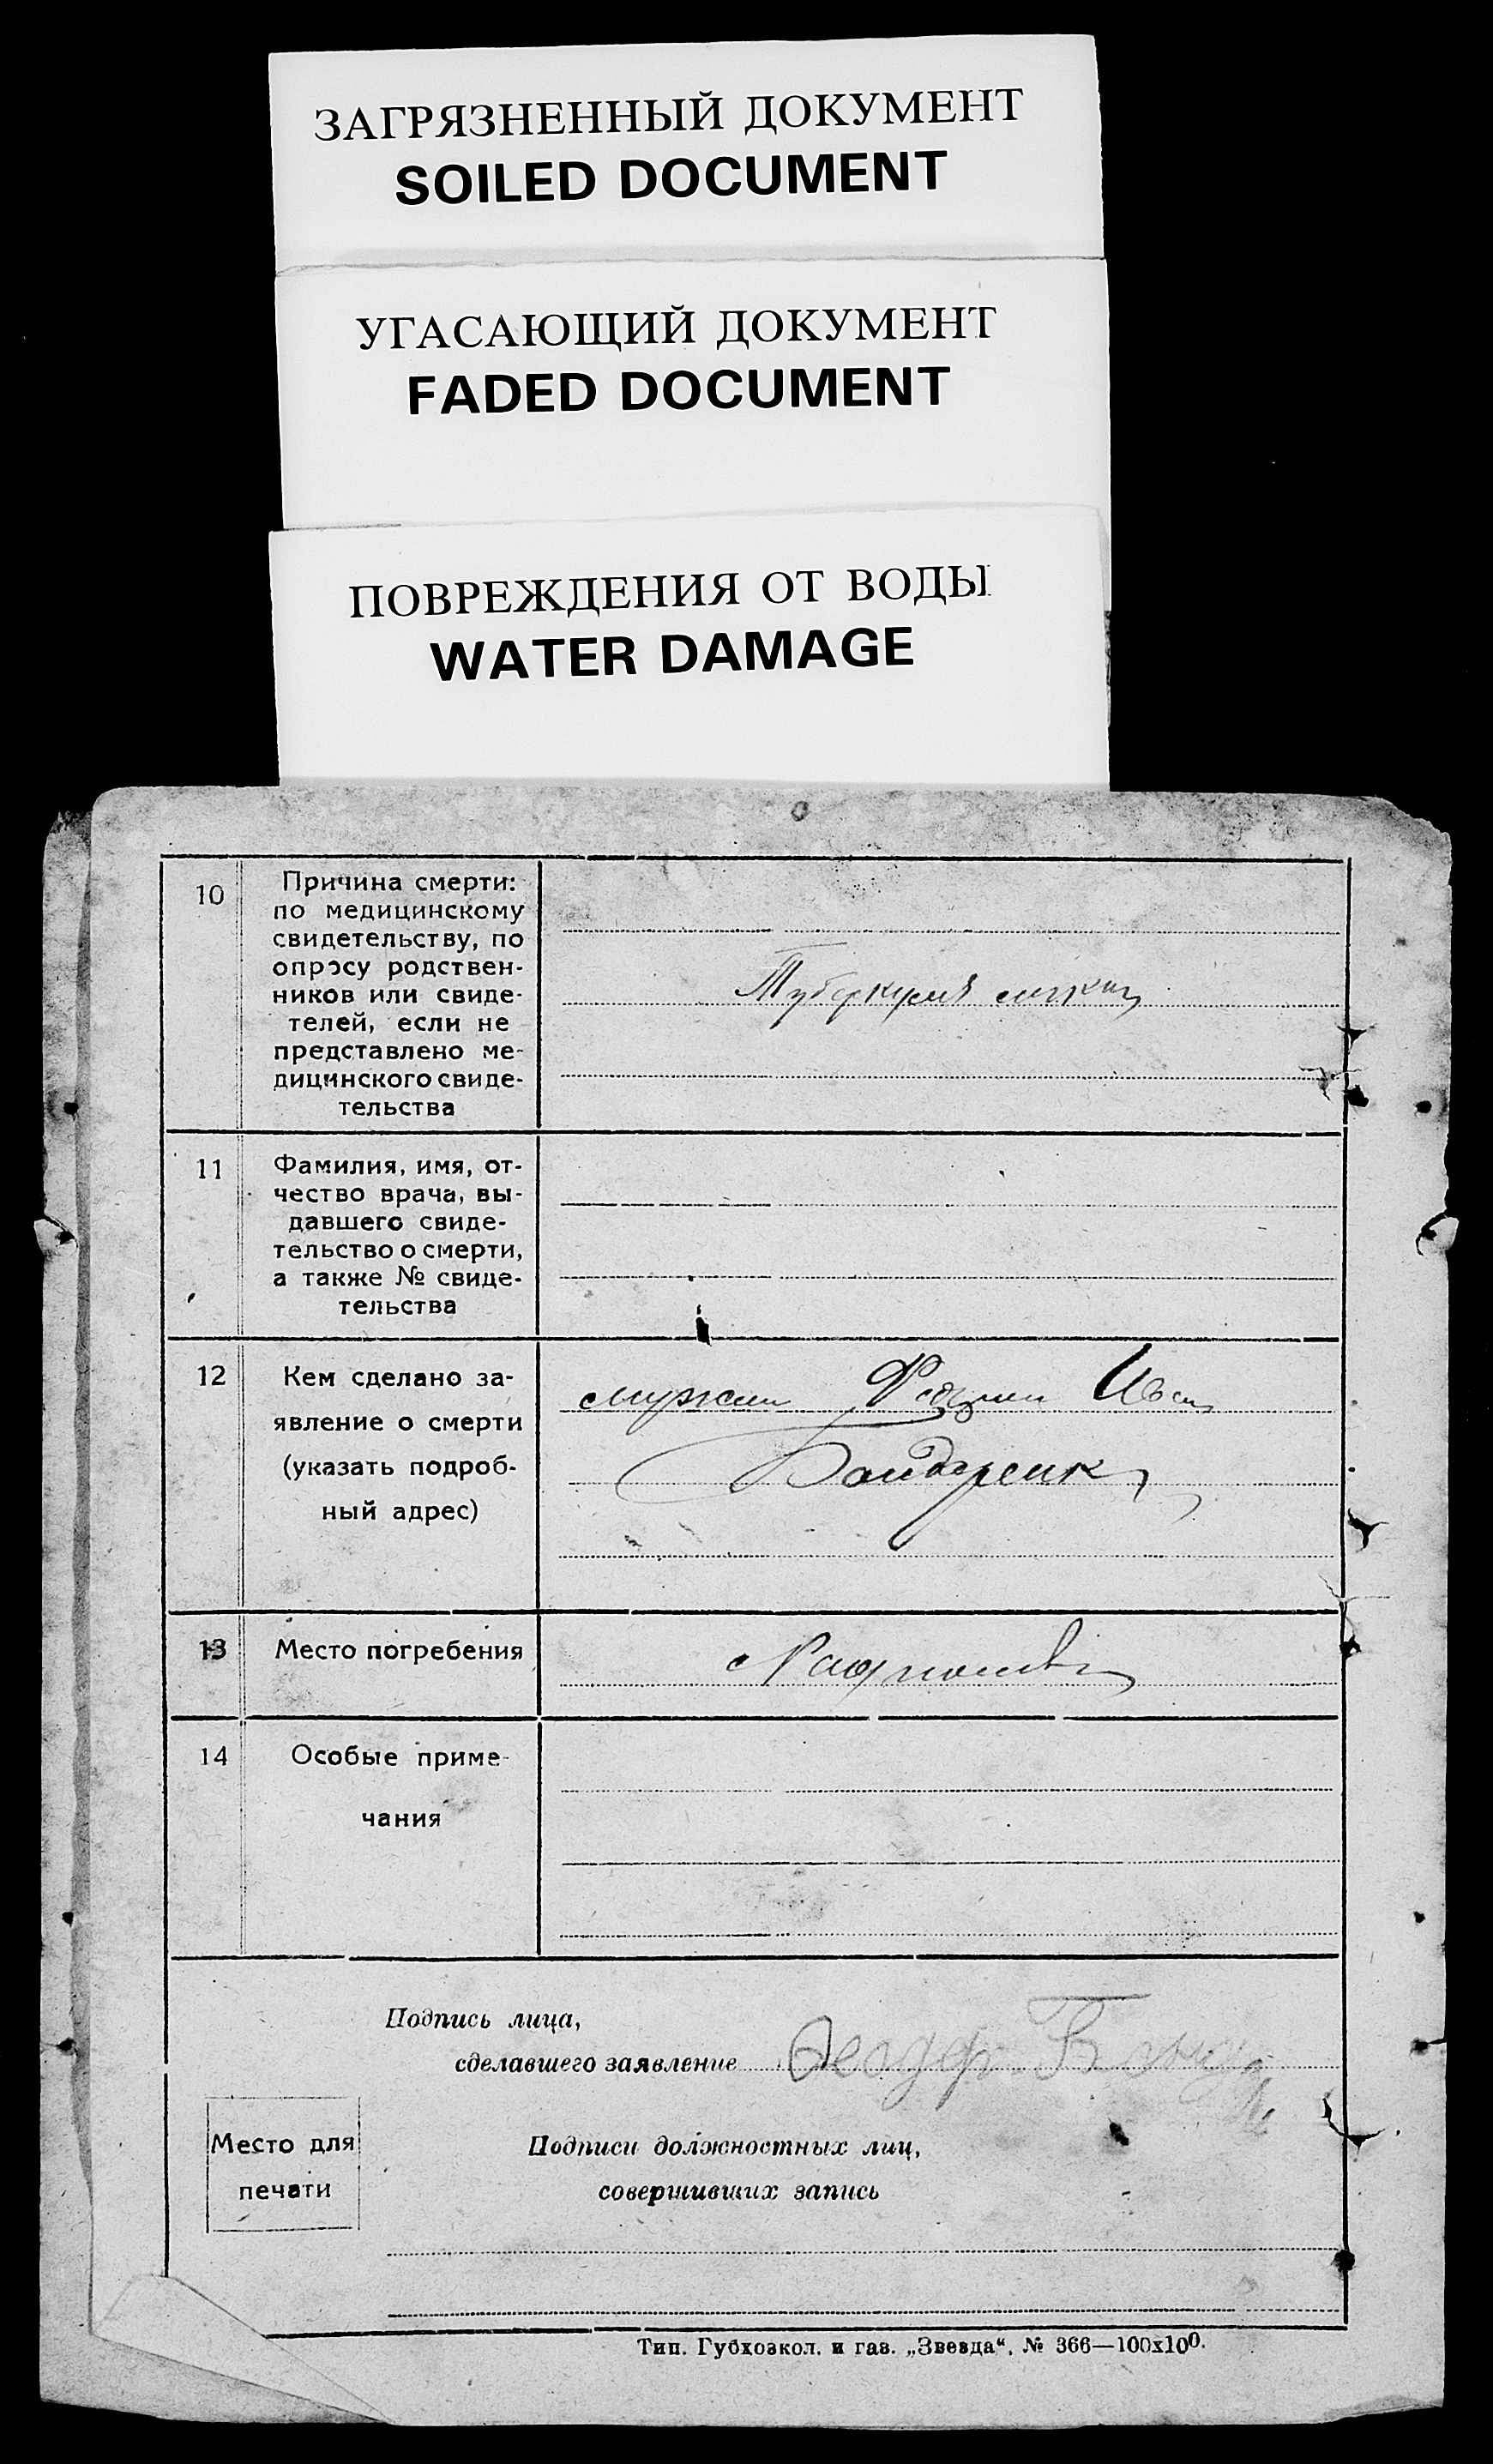 ЗАГРЯЗНЕННЫЙ ДОКУМЕНТ
SOILED DOCUMENT
УГАСАЮЩИЙ ДОКУМЕНТ
FADED DOCUMENT
ПОВРЕЖДЕНИЯ ОТ ВОДЫ
WATER DAMAGE
10
Причина смерти:
по медицинскому
свидетельству, по
опросу родствен-
ников или свиде-
телей, если не
представлено ме-
дицинского свиде-
тельства
11
Фамилия, имя, от-
чество врача, вы-
давшего свиде-
тельство о смерти,
а также № свиде-
тельства
12
Кем сделано за-
явление о смерти
(указать подроб-
ный адрес)
Бондаренко
13
Место погребения
14
Особые приме-
чания
Подпись лица,
сделавшего заявление
Место для
печати
Подписи должностных лиц,
совершивших запись
Тип. Губхозкол. и газ. „Звезда“, № 366—100х100.